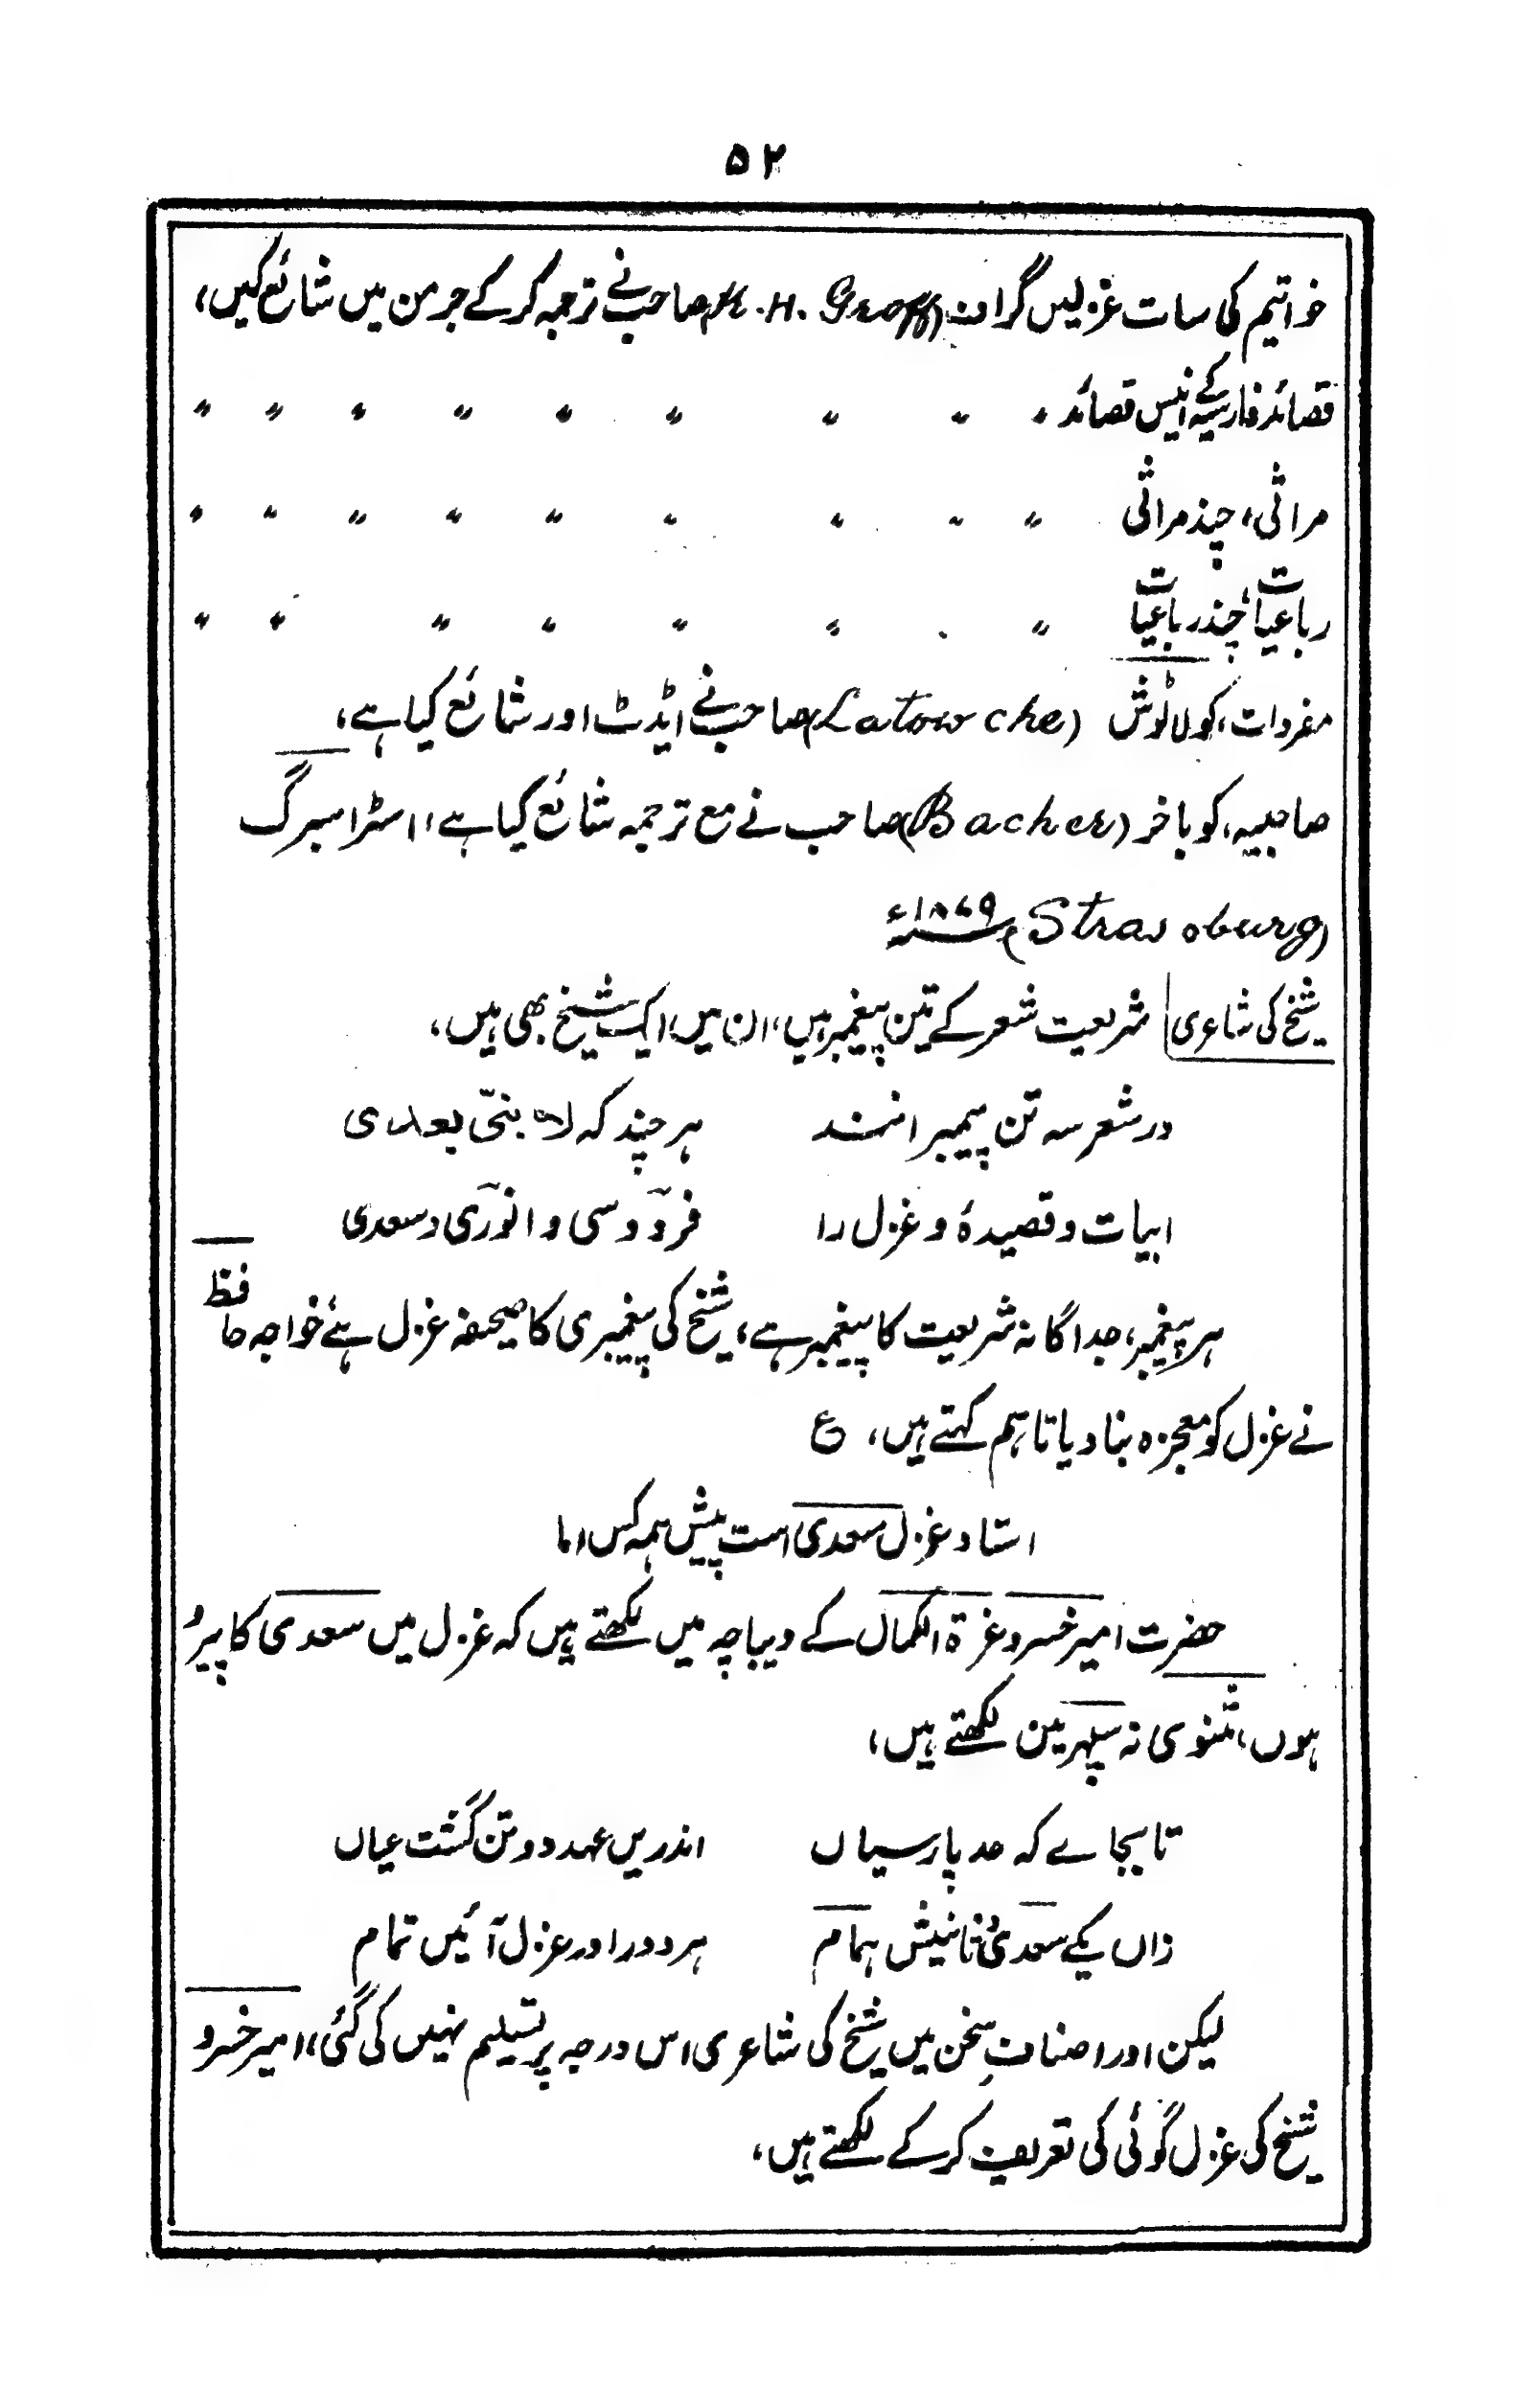 ۵۲
خواتیم کی سات غزلیں گراف (K.H. Graff) صاحب نے ترجمہ کر کے جرمن میں شائع کیں،
قصائد فارسیہ کے انیس قصائد 〃 〃 〃 〃 〃 〃 〃 〃 〃
مراثی، چند مراثی 〃 〃 〃 〃 〃 〃 〃 〃 〃
رباعیات، چند رباعیات 〃 〃 〃 〃 〃 〃 〃 〃
مفردات، کو لاٹوش (Latouche) صاحب نے ایڈٹ اور شائع کیا ہے،
صاحبیہ، کو باخر (Bacher) صاحب نے مع ترجمہ شائع کیا ہے، اسٹراسبرگ
(Strassburg) ۱۸۷۹ء
شیخ کی شاعری شریعت شعر کے تین پیغمبر ہیں، ان میں ایک شیخ بھی ہیں،
در شعر سہ تن پیمبر انند ہر چند کہ لا نبیّ بعدی
ابیات و قصیدۂ و غزل را فردوسی و انوری و سعدی
ہر پیغمبر، جداگانہ شریعت کا پیغمبر ہے، شیخ کی پیغمبری کا صحیفہ غزل ہے، خواجہ حافظ
نے غزل کو معجزہ بنا دیا تاہم کہتے ہیں، ع
استاد غزل سعدی است پیش ہمہ کس اما
حضرت امیر خسرو غرۃ الکمال کے دیباچہ میں لکھتے ہیں کہ غزل میں سعدی کا پیرو
ہوں، مثنوی نہ سپہر مین لکھتے ہیں،
تا بجاے کہ حد پارسیاں اندریں عہد دو تن گشت عیاں
زاں یکے سعدی و ثانیش ہمام ہر دو را در غزل آئیں تمام
لیکن اور اصنافِ سخن میں شیخ کی شاعری اس درجہ پر تسلیم نہیں کی گئی، امیر خسرو
شیخ کی غزل گوئی کی تعریف کر کے لکھتے ہیں،